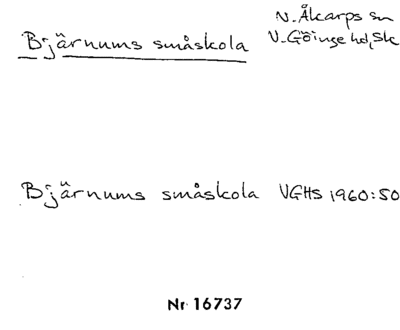 N. Åkarps sn
Bjärnums småskola V. Göinge hd, Sk
Bjärnums småskola VGHS 1960:50
Nr 16737